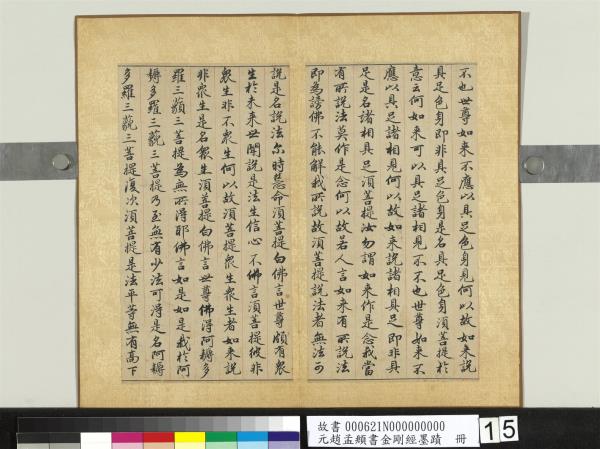 不也世尊如来不應以具足色身見何以故如来說
具足色身即非具足色身是名具足色身須菩提於
意云何如来可以具足諸相見不不也世尊如来不
應以具足諸相見何以故如来說諸相具足即非具
足是名諸相具足須菩提汝勿謂如来作是念我當
有所說法莫作是念何以故若人言如来有所說法
即為謗佛不能解我所說故須菩提說法者無法可
說是名說法尒時慧命須菩提白佛言世尊頗有衆
生於未来世聞說是法生信心不佛言須菩提彼非
衆生非不衆生何以故須菩提衆生衆生者如来說
非衆生是名衆生須菩提白佛言世尊佛得阿耨多
羅三藐三菩提為無所得耶佛言如是如是我於阿
耨多羅三藐三菩提乃至無有少法可得是名阿耨
多羅三藐三菩提復次須菩提是法平等無有高下
故書 000621N000000000
元趙孟頫書金剛經墨蹟 冊
15